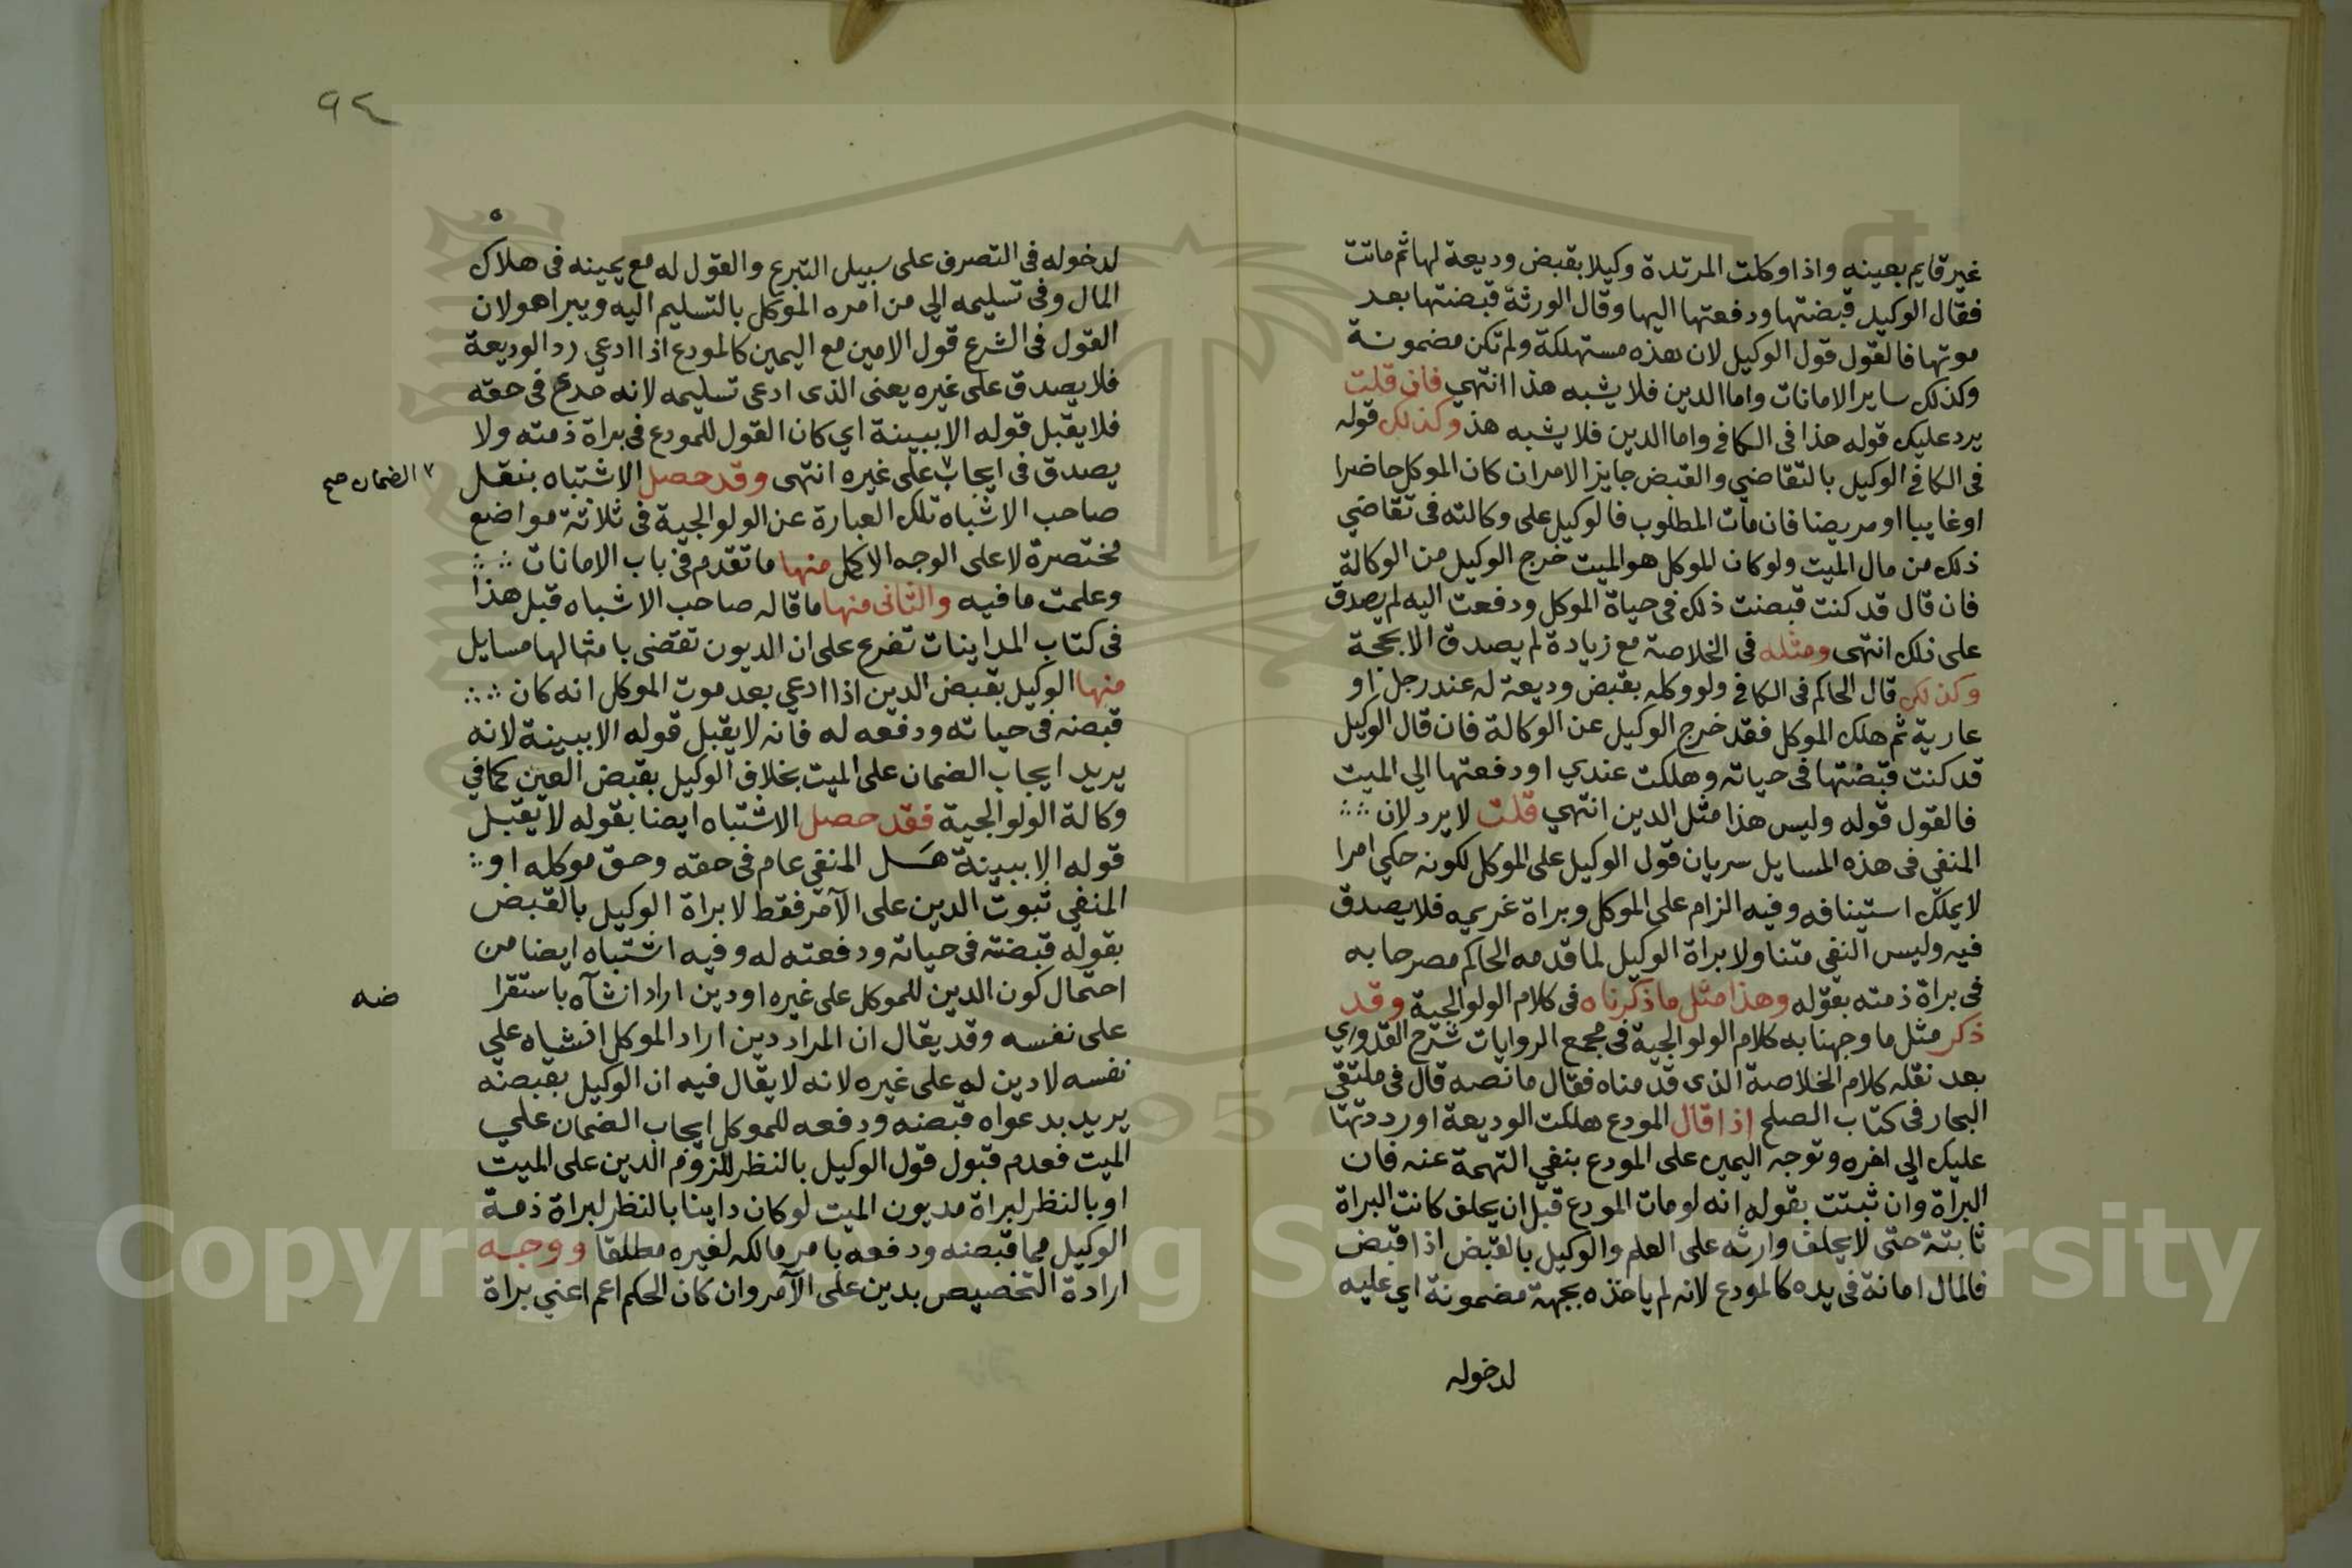 غير قايم بعينه واذا وكلت المرتدة وكيلا بقبض وديعة لها ثم ماتت
فقال الوكيل قبضتها ودفعتها اليها وقال الورثة قبضتها بعد
موتها فالقول قول الوكيل لان هذه مستهلكة ولم تكن مضمونة
وكذلك ساير الامانات واما الدين فلا يشبه هذا انتهي فان قلت
يرد عليك قوله هذا في الكافي واما الدين فلا يشبه هذ وكذلك قوله
في الكافي الوكيل بالتقاضي والقبض جايز الامر ان كان الموكل حاضرا
او غايبا او مريضا فان مات المطلوب فالوكيل على وكالته في تقاضي
ذلك من مال الميت ولو كان للموكل هو الميت خرج الوكيل من الوكالة
فان قال قد كنت قبضت ذلك في حياة الموكل ودفعت اليه لم يصدق
على ذلك انتهى ومثله في الخلاصة مع زيادة لم يصدق الا بحجة
وكذلك قال الحاكم في الكافي ولو وكله بقبض وديعة له عند رجل او
عارية ثم هلك الموكل فقد خرج الوكيل عن الوكالة فان قال الوكيل
قد كنت قبضتها في حياته وهلكت عندي او دفعتها الي الميت
فالقول قوله وليس هذا مثل الدين انتهي قلت لا يرد لان
المنفي في هذه المسايل سريان قول الوكيل على الموكل لكونه حكي امرا
لا يملك استينافه وفيه الزام على الموكل وبراة غريمه فلا يصدق
فيه وليس النفي متناولا براة الوكيل لما قدمه الحاكم مصرحا به
في براة ذمته بقوله وهذا مثل ما ذكرناه في كلام الولوالجية وقد
ذكر مثل ما وجهنا به كلام الولوالجية في مجمع الروايات شرح القدوري
بعد نقله كلام الخلاصة الذي قدمناه فقال ما نصه قال في ملتقي
البحار في كتاب الصلح اذا قال المودع هلكت الوديعة او رددتها
عليك الي اخره وتوجه اليمين على المودع بنفي التهمة عنه فان
البراة وان ثبتت بقوله انه لو مات المودع قبل ان يحلف كانت البراة
ثابتة حتى لا يحلف وارثه على العلم والوكيل بالقبض اذا قبض
فالمال امانة في يده كالمودع لانه لم ياخذه بجهة مضمونة اي عليه
لدخوله
٩٤
لدخوله في التصرف على سبيل التبرع والقول له مع يمينه في هلاك
المال وفي تسليمه الي من امره الموكل بالتسليم اليه ويبرا هو لان
القول في الشرع قول الامين مع اليمين كالمودع اذا ادعي رد الوديعة
فلا يصدق على غيره يعني الذي ادعى تسليمه لانه مدع في حقه
فلا يقبل قوله الا ببينة اي كان القول للمودع في براة ذمته ولا
يصدق في ايجاب على غيره انتهى وقد حصل الاشتباه بنقل
الضمان صح
صاحب الاشباه تلك العبارة عن الولوالجية في ثلاثة مواضع
مختصرة لا على الوجه الاكمل منها ما تقدم في باب الامانات
وعلمت ما فيه والثاني منها ما قاله صاحب الاشباه قبل هذا
في كتاب المداينات تفرع على ان الديون تقضى بامثالها مسايل
منها الوكيل بقبض الدين اذا ادعي بعد موت الموكل انه كان
قبضه في حياته ودفعه له فانه لا يقبل قوله الا ببينة لانه
يريد ايجاب الضمان على الميت بخلاف الوكيل بقبض العين كما في
وكالة الولوالجية فقد حصل الاشتباه ايضا بقوله لا يقبل
قوله الا ببينة هل المنفي عام في حقه وحق موكله او
المنفي ثبوت الدين على الآمر فقط لا براة الوكيل بالقبض
بقوله قبضته في حياته ودفعته له وفيه اشتباه ايضا من
احتمال كون الدين للموكل على غيره او دين اراد انشآه باستقرا
ضه
على نفسه وقد يقال ان المراد دين اراد الموكل انشياه علي
نفسه لا دين له على غيره لانه لا يقال فيه ان الوكيل بقبضه
يريد بدعواه قبضه ودفعه للموكل ايجاب الضمان علي
الميت فعدم قبول قول الوكيل بالنظر للزوم الدين على الميت
او بالنظر لبراة مديون الميت لو كان داينا بالنظر لبراة ذمة
الوكيل مما قبضه ودفعه بامر مالكه لغيره مطلقا ووجه
ارادة التخصيص بدين على الآمر وان كان الحكم اعم اعني براة